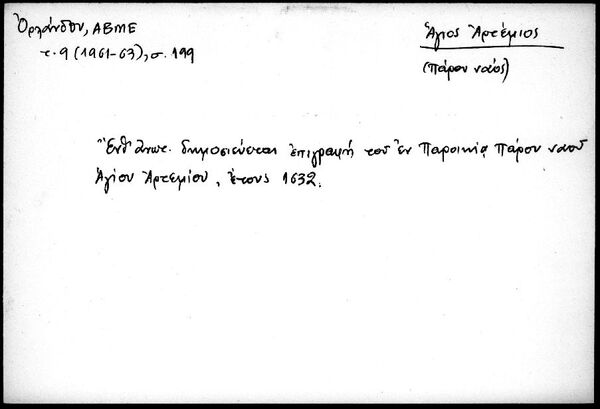 Ὀρλάνδου, ΑΒΜΕ
τ. 9 (1961-63), σ. 199
Ἅγιος Ἀρτέμιος
(Πάρου ναός)
Ἔνθ' ἀνωτ. δημοσιεύεται ἐπιγραφή τοῦ ἐν Παροικίᾳ Πάρου ναοῦ
Ἁγίου Ἀρτεμίου, ἔτους 1632.